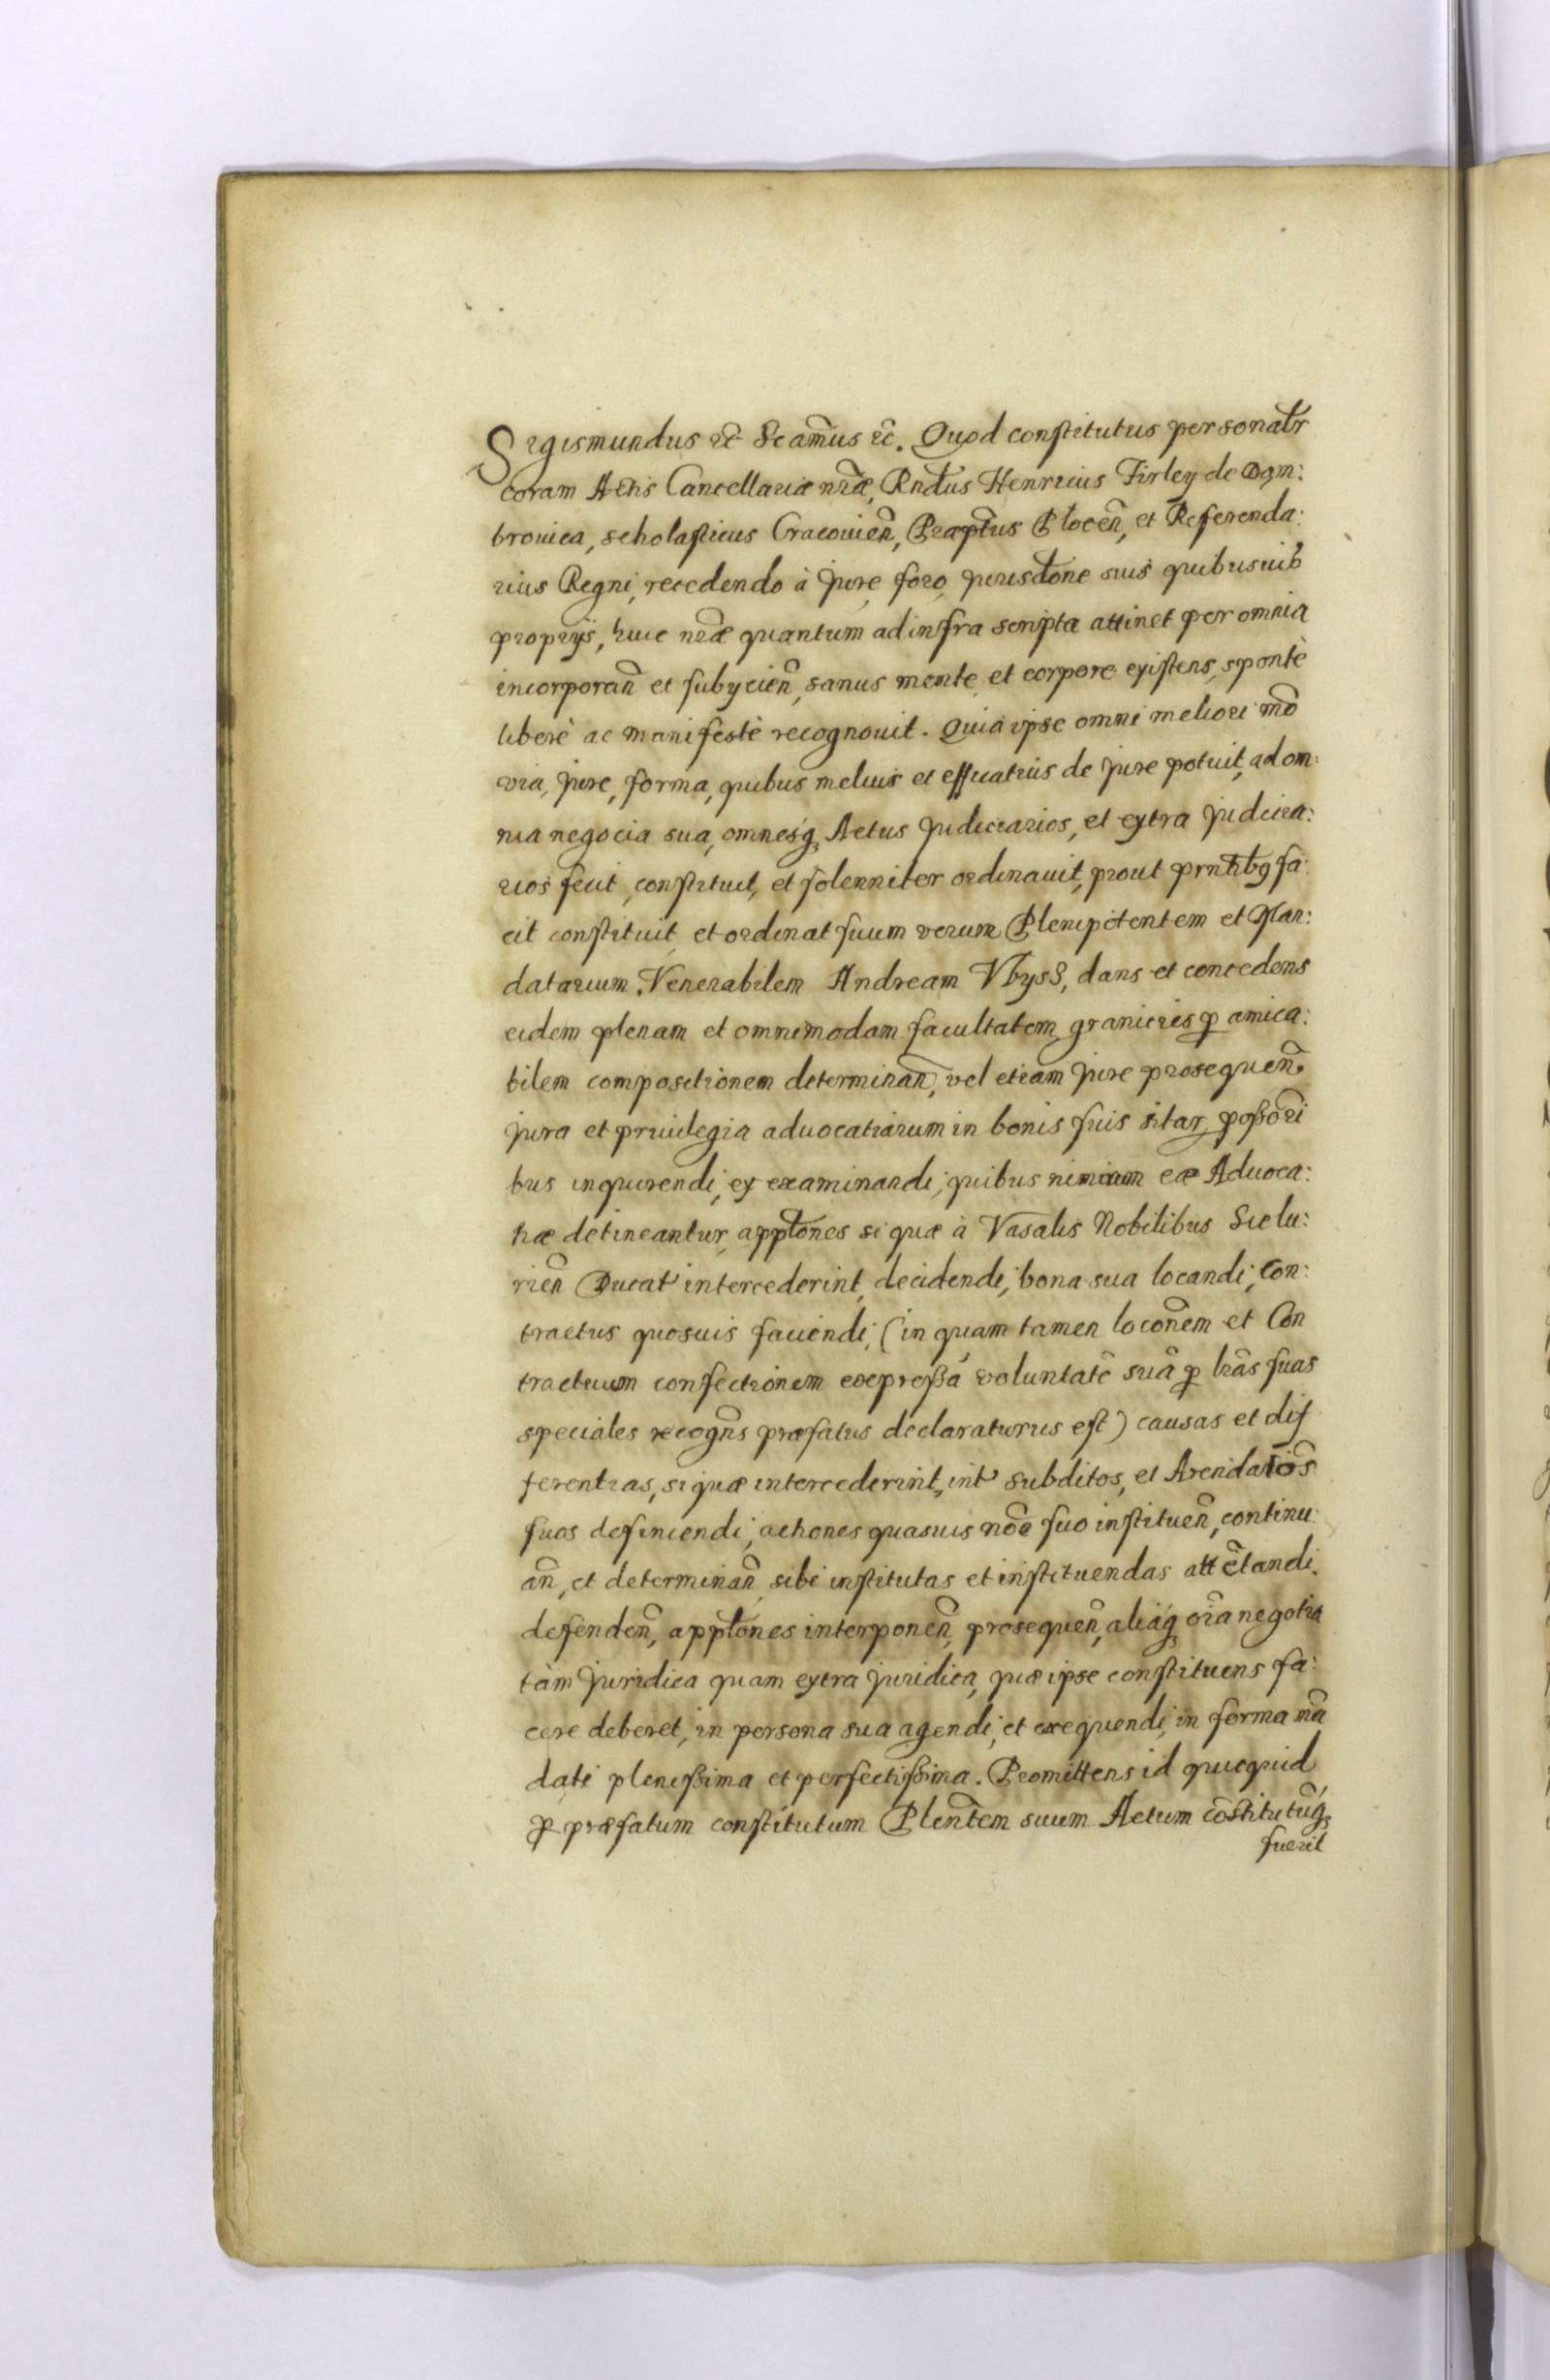 Sigismundus etc Sc amus etc. Quod constitutus personalr
coram Actis Cancellariæ nræ, Rndus Henricus Firley de Dąm:
brouica, scholasticus Cracouien, Præptus Plocen, et Referenda:
rius Regni, recedendo à jure foro jurisdtone suis quibusuis
proprijs, huic nræ quantum ad infra scripta attinet per omnia
incorporan et subijcien, sanus mente et corpore existens, spontè
liberè ac manifestè recognouit. Quia ipse omni meliori mo
via, jure, forma, quibus melius et efficatius de jure potuit, ad om:
nia negocia sua, omnesq Actus judiciarios, et extra judicia:
rios fecit, constituit, et solenniter ordinauit, prout prntibq fa:
cit constituit et ordinat suum verum Plenipotentem et Man:
datarium. Venerabilem Andream Vbyss, dans et concedens
eidem plenam et omnimodam facultatem granicies p amica:
bilem compositionem determinan, vel etiam jure prosequen.
jura et priuilegia aduocatiarum in bonis suis sitar possori
bus inquirendi, ex examinandi, quibus nimirum eæ Aduoca:
tiæ detineantur, appltones si quæ à Vasalis Nobilibus Sielu:
rien Ducat intercederint, decidendi, bona sua locandi, Con:
tractus quosuis faciendi, (in quam tamen loconem et Con
tractuum confectionem expressá voluntatē suā p lras suas
speciales recogns præfatus declaraturus est) causas et dif
ferentias, si quæ intercederint, int subditos, et Arendatos
suos definiendi, actiones quasuis noe suo instituen, continu
an, et determinan sibi institutas et instituendas attētandi.
defenden, appltones interponen, prosequen, aliaq oia negotia
tàm juridica quam extra juridica, quæ ipse constituens fa:
cere deberet, in persona sua agendi, et exequendi, in forma mā
dati plenissima et perfectissima. Promittens id quicquid
p præfatum constitutum Plentem suum Actum cōstitutūq,
fuerit